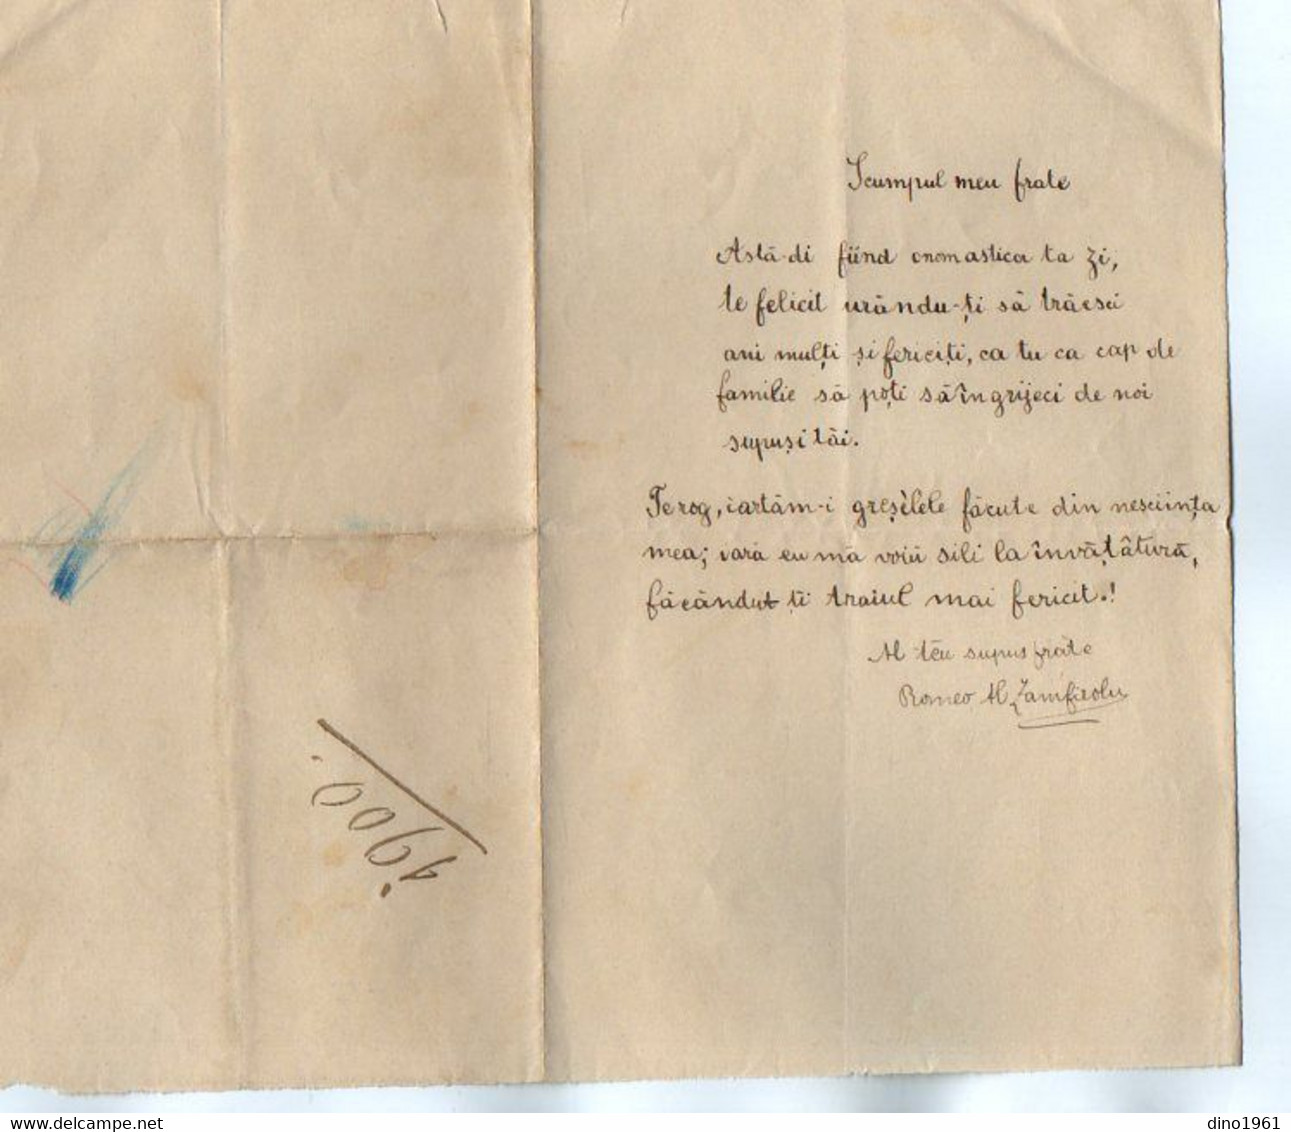 Scumpul meu frate
Astă-di fiind onomastica ta zi,
te felicit urându-ți să trăesci
ani mulți și fericiți, ca tu ca cap de
familie să poți să îngrijeci de noi
supuși tăi.
Te rog, iartăm-i greșèlele făcute din nesciința
mea; iară eu mă voiŭ sili la învățătură,
făcându ți traiul mai fericit.!
Al tĕu supus frate
Romeo Al Zamfirolu
1900.
dino1961